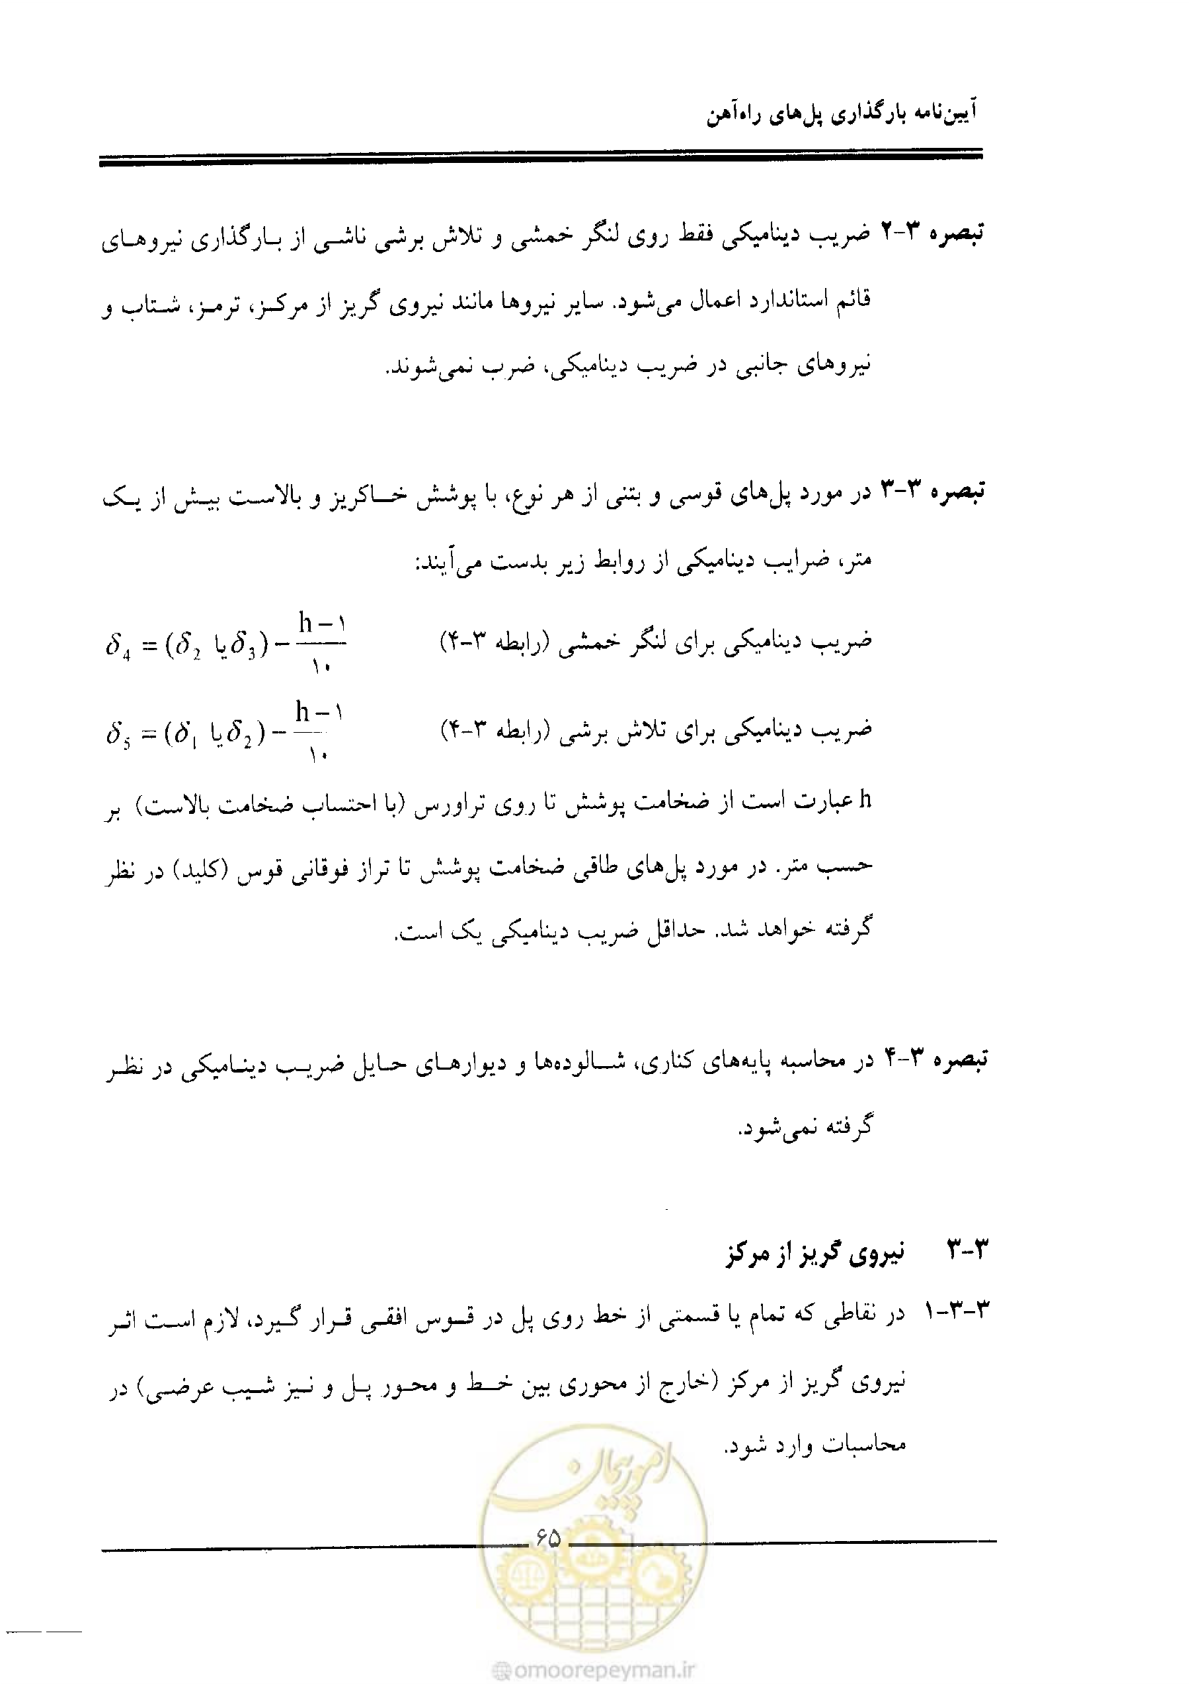 آیین‌نامه بارگذاری پل‌های راه‌آهن
تبصره ۳-۲ ضریب دینامیکی فقط روی لنگر خمشی و تلاش برشی ناشی از بارگذاری نیروهای
قائم استاندارد اعمال می‌شود. سایر نیروها مانند نیروی گریز از مرکز، ترمز، شتاب و
نیروهای جانبی در ضریب دینامیکی، ضرب نمی‌شوند.
تبصره ۳-۳ در مورد پل‌های قوسی و بتنی از هر نوع، با پوشش خاکریز و بالاست بیش از یک
متر، ضرایب دینامیکی از روابط زیر بدست می‌آیند:
ضریب دینامیکی برای لنگر خمشی (رابطه ۳-۴) δ₄ = (δ₂ یا δ₃) − (h − ۱)/۱۰
ضریب دینامیکی برای تلاش برشی (رابطه ۳-۴) δ₅ = (δ₁ یا δ₂) − (h − ۱)/۱۰
h عبارت است از ضخامت پوشش تا روی تراورس (با احتساب ضخامت بالاست) بر
حسب متر. در مورد پل‌های طاقی ضخامت پوشش تا تراز فوقانی قوس (کلید) در نظر
گرفته خواهد شد. حداقل ضریب دینامیکی یک است.
تبصره ۳-۴ در محاسبه پایه‌های کناری، شالوده‌ها و دیوارهای حایل ضریب دینامیکی در نظر
گرفته نمی‌شود.
۳-۳ نیروی گریز از مرکز
۳-۳-۱ در نقاطی که تمام یا قسمتی از خط روی پل در قوس افقی قرار گیرد، لازم است اثر
نیروی گریز از مرکز (خارج از محوری بین خط و محور پل و نیز شیب عرضی) در
محاسبات وارد شود.
امور پیمان
۶۵
@omoorepeyman.ir